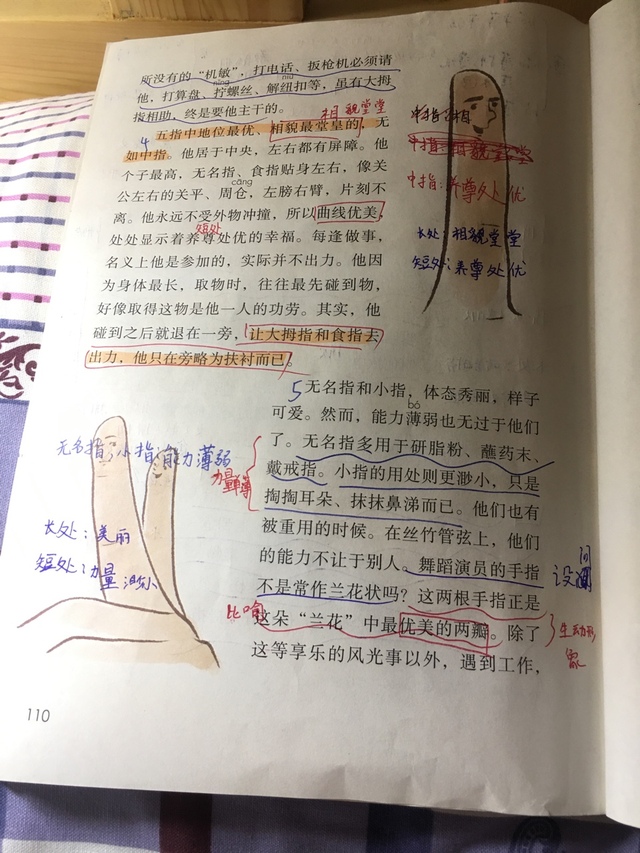 所没有的“机敏”，打电话、扳枪机必须请
níng niǔ
他，打算盘、拧螺丝、解纽扣等，虽有大拇
指相助，终是要他主干的。
相貌堂堂
4 五指中地位最优、相貌最堂皇的，无
如中指。他居于中央，左右都有屏障。他
个子最高，无名指、食指贴身左右，像关
cāng
公左右的关平、周仓，左膀右臂，片刻不
离。他永远不受外物冲撞，所以曲线优美，
短处
处处显示着养尊处优的幸福。每逢做事，
名义上他是参加的，实际并不出力。他因
为身体最长，取物时，往往最先碰到物，
好像取得这物是他一人的功劳。其实，他
碰到之后就退在一旁，让大拇指和食指去
出力，他只在旁略为扶衬而已。
中指：相
中指：相貌堂堂
中指：养尊处优
长处：相貌堂堂
短处：养尊处优
5 无名指和小指，体态秀丽，样子
bó
可爱。然而，能力薄弱也无过于他们
了。无名指多用于研脂粉、蘸药末、
戴戒指。小指的用处则更渺小，只是
掏掏耳朵、抹抹鼻涕而已。他们也有
被重用的时候。在丝竹管弦上，他们
的能力不让于别人。舞蹈演员的手指
不是常作兰花状吗？这两根手指正是
这朵“兰花”中最优美的两瓣。除了
这等享乐的风光事以外，遇到工作，
无名指，小指：能力薄弱
力量单薄
长处：美丽
短处：力量渺小
设问
比喻
生动形
象
110